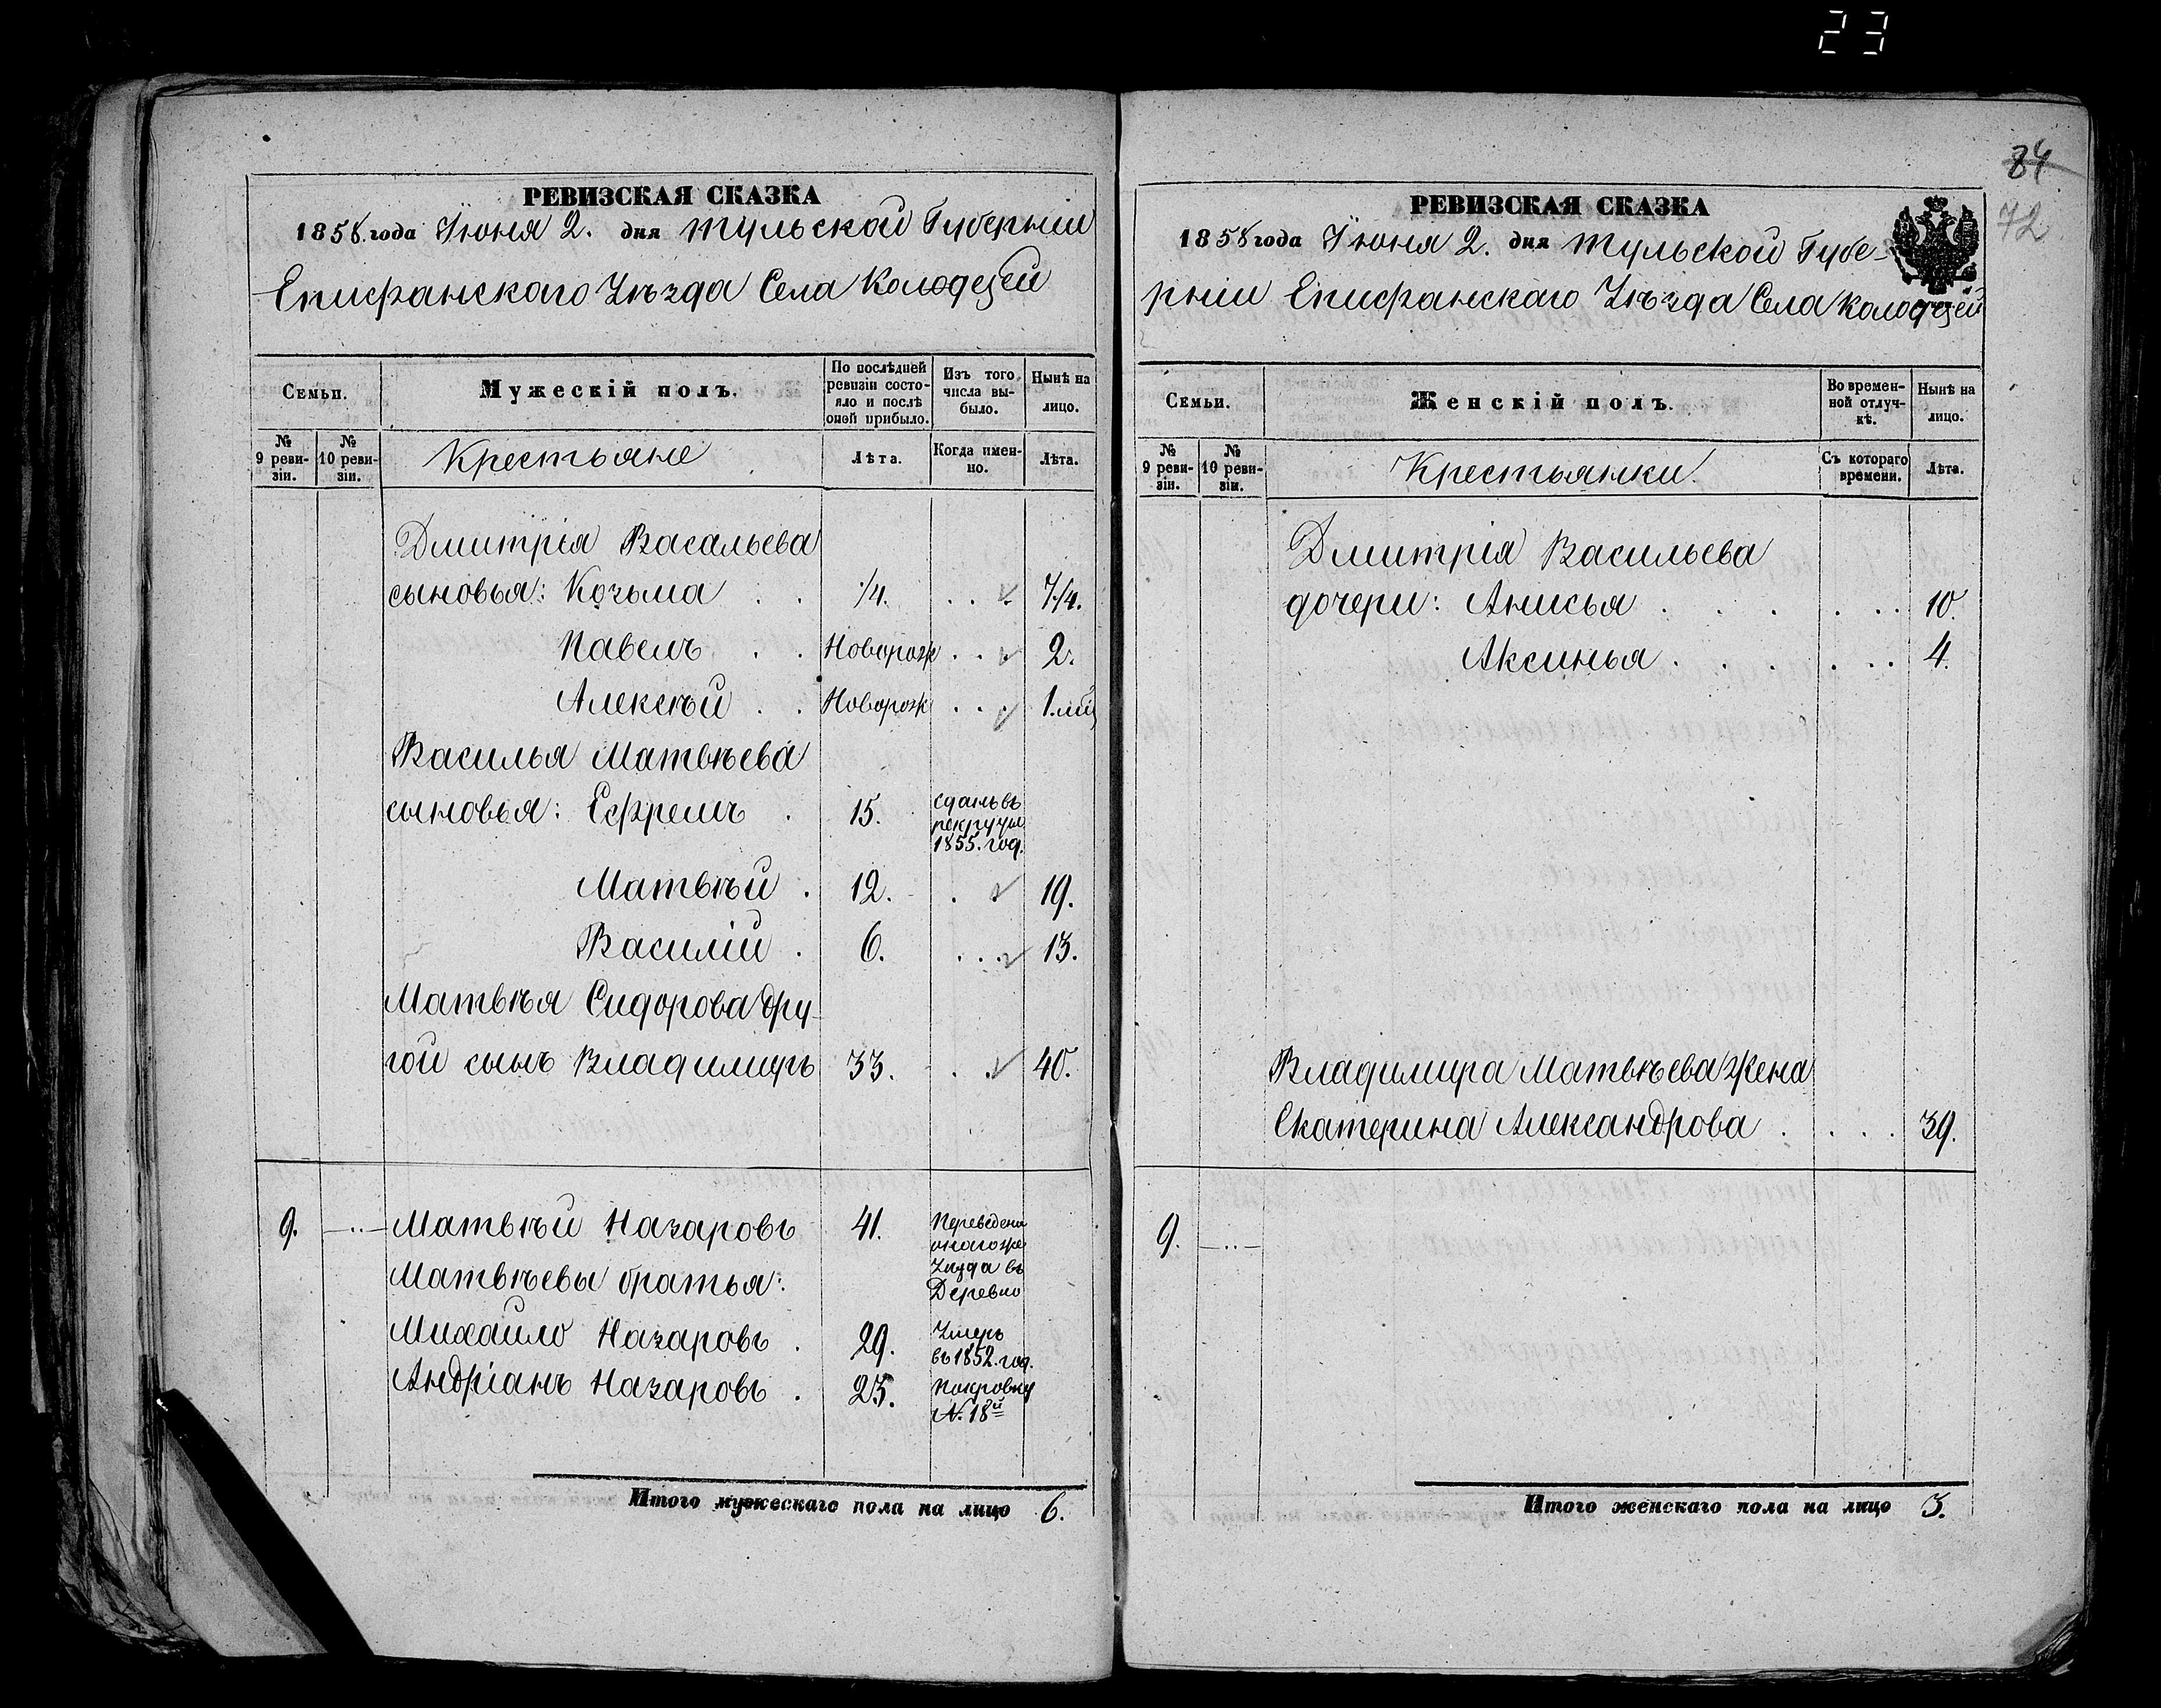 23
84
72
РЕВИЗСКАЯ СКАЗКА
1858. года Июня 2. дня Тульской Губерніи
Епифанскаго Уѣзда Села Колодезей
Семьи.
Мужескій полъ.
По послѣдней ревизіи состояло и послѣ оной прибыло.
Изъ того числа выбыло.
Нынѣ на лицо.
№ 9 ревизіи.
№ 10 ревизіи.
Крестьяне
Лѣта.
Когда именно.
Лѣта.
Дмитрія Васальева
сыновья: Козьма . . 1/4. . . . 7 1/4.
Павелъ . . Новорож . . . 2.
Алексѣй . . Новорож . . . 1. мѣц
Василья Матвѣева
сыновья: Ефремъ . 15. сданъ въ рекруты 1855. год.
Матвѣй . 12. . . 19.
Василій . 6. . . . 13.
Матвѣя Сидорова дру-
гой сынъ Владимиръ 33. . . 40.
9. —..— Матвѣй Назаровъ 41. Переведены оногоже Уѣзда въ
Матвѣевы братья: Деревню
Михайло Назаровъ . 29. Умеръ въ 1852. год.
Андріанъ Назаровъ . 23. Покровку № 18й
Итого мужескаго пола на лицо 6.
РЕВИЗСКАЯ СКАЗКА
1858 года Июня 2. дня Тульской Губе-
рніи Епифанскаго Уѣзда Села Колодезей
Семьи.
Женскій полъ.
Во временной отлучкѣ.
Нынѣ на лицо.
№ 9 ревизіи.
№ 10 ревизіи.
Крестьянки.
Съ котораго времени.
Лѣта.
Дмитрія Васильева
дочери: Анисья . . . . . . 10.
Аксинья . . . . . . 4.
Владимира Матвѣева Жена
Екатерина Александрова . . . . 39.
9. —..—
Итого женскаго пола на лицо 3.